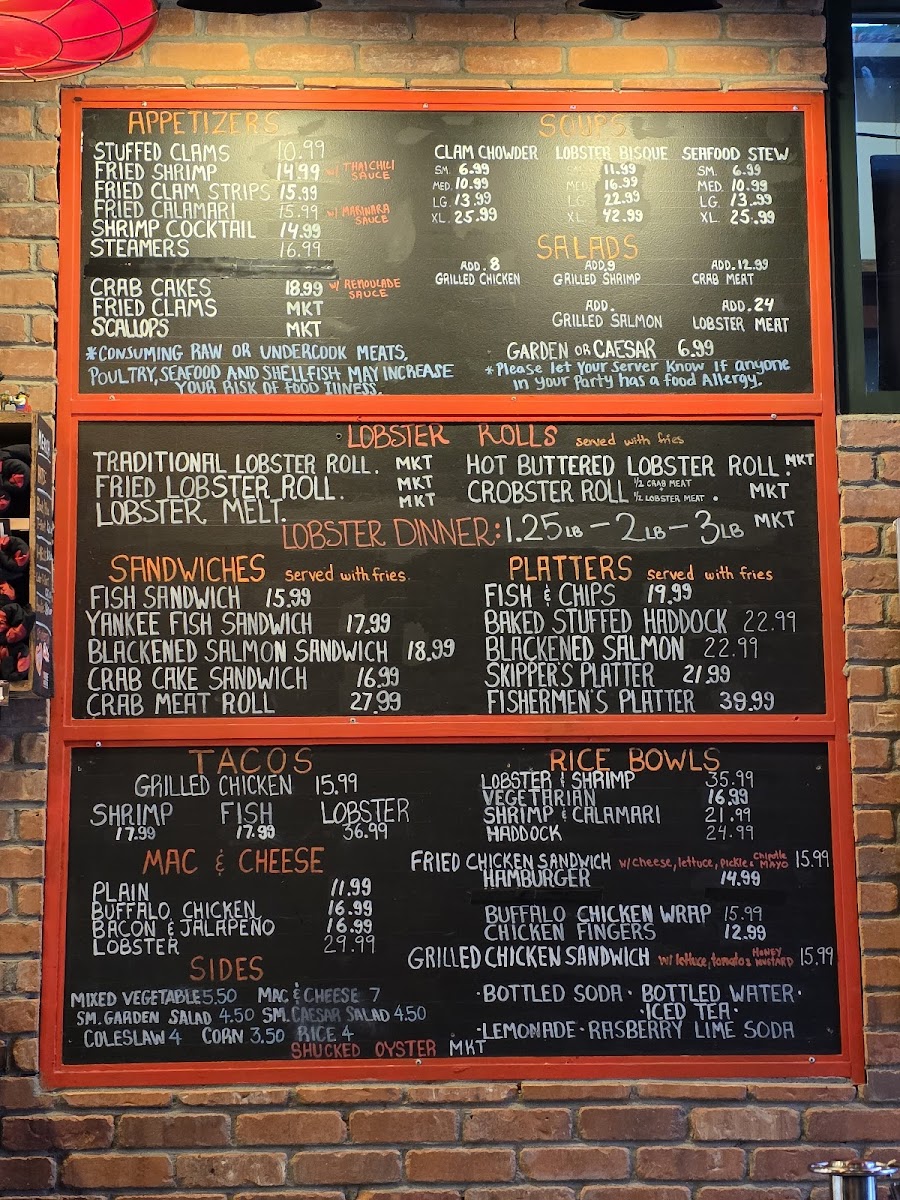 APPETIZERS
STUFFED CLAMS 10.99
FRIED SHRIMP 14.99 w/ THAI CHILI SAUCE
FRIED CLAM STRIPS 15.99
FRIED CALAMARI 15.99 w/ MARINARA SAUCE
SHRIMP COCKTAIL 14.99
STEAMERS 16.99
CRAB CAKES 18.99 w/ REMOULADE SAUCE
FRIED CLAMS MKT
SCALLOPS MKT
*CONSUMING RAW OR UNDERCOOK MEATS,
POULTRY, SEAFOOD AND SHELLFISH MAY INCREASE
YOUR RISK OF FOOD ILLNESS.
SOUPS
CLAM CHOWDER LOBSTER BISQUE SEAFOOD STEW
SM. 6.99 SM. 11.99 SM. 6.99
MED. 10.99 MED. 16.99 MED. 10.99
LG. 13.99 LG. 22.99 LG. 13.99
XL. 25.99 XL. 42.99 XL. 25.99
SALADS
ADD. 8 ADD. 9 ADD. 12.99
GRILLED CHICKEN GRILLED SHRIMP CRAB MEAT
ADD. ADD. 24
GRILLED SALMON LOBSTER MEAT
GARDEN OR CAESAR 6.99
*Please let Your Server Know If anyone
in your Party has a food Allergy.
LOBSTER ROLLS served with fries
TRADITIONAL LOBSTER ROLL. MKT
FRIED LOBSTER ROLL. MKT
LOBSTER MELT. MKT
HOT BUTTERED LOBSTER ROLL. MKT
CROBSTER ROLL 1/2 CRAB MEAT 1/2 LOBSTER MEAT . MKT
LOBSTER DINNER: 1.25LB - 2LB - 3LB MKT
SANDWICHES served with fries.
FISH SANDWICH 15.99
YANKEE FISH SANDWICH 17.99
BLACKENED SALMON SANDWICH 18.99
CRAB CAKE SANDWICH 16.99
CRAB MEAT ROLL 27.99
PLATTERS served with fries
FISH & CHIPS 19.99
BAKED STUFFED HADDOCK 22.99
BLACKENED SALMON 22.99
SKIPPER'S PLATTER 21.99
FISHERMEN'S PLATTER 39.99
TACOS
GRILLED CHICKEN 15.99
SHRIMP FISH LOBSTER
17.99 17.99 36.99
MAC & CHEESE
PLAIN 11.99
BUFFALO CHICKEN 16.99
BACON & JALAPEÑO 16.99
LOBSTER 29.99
SIDES
MIXED VEGETABLE 5.50 MAC & CHEESE 7
SM. GARDEN SALAD 4.50 SM. CAESAR SALAD 4.50
COLESLAW 4 CORN 3.50 RICE 4
SHUCKED OYSTER MKT
RICE BOWLS
LOBSTER & SHRIMP 35.99
VEGETARIAN 16.99
SHRIMP & CALAMARI 21.99
HADDOCK 24.99
FRIED CHICKEN SANDWICH w/ cheese, lettuce, pickle & Chipotle MAYO 15.99
HAMBURGER 14.99
BUFFALO CHICKEN WRAP 15.99
CHICKEN FINGERS 12.99
GRILLED CHICKEN SANDWICH w/ lettuce, tomato & HONEY MUSTARD 15.99
·BOTTLED SODA· BOTTLED WATER·
·ICED TEA·
·LEMONADE·RASBERRY LIME SODA